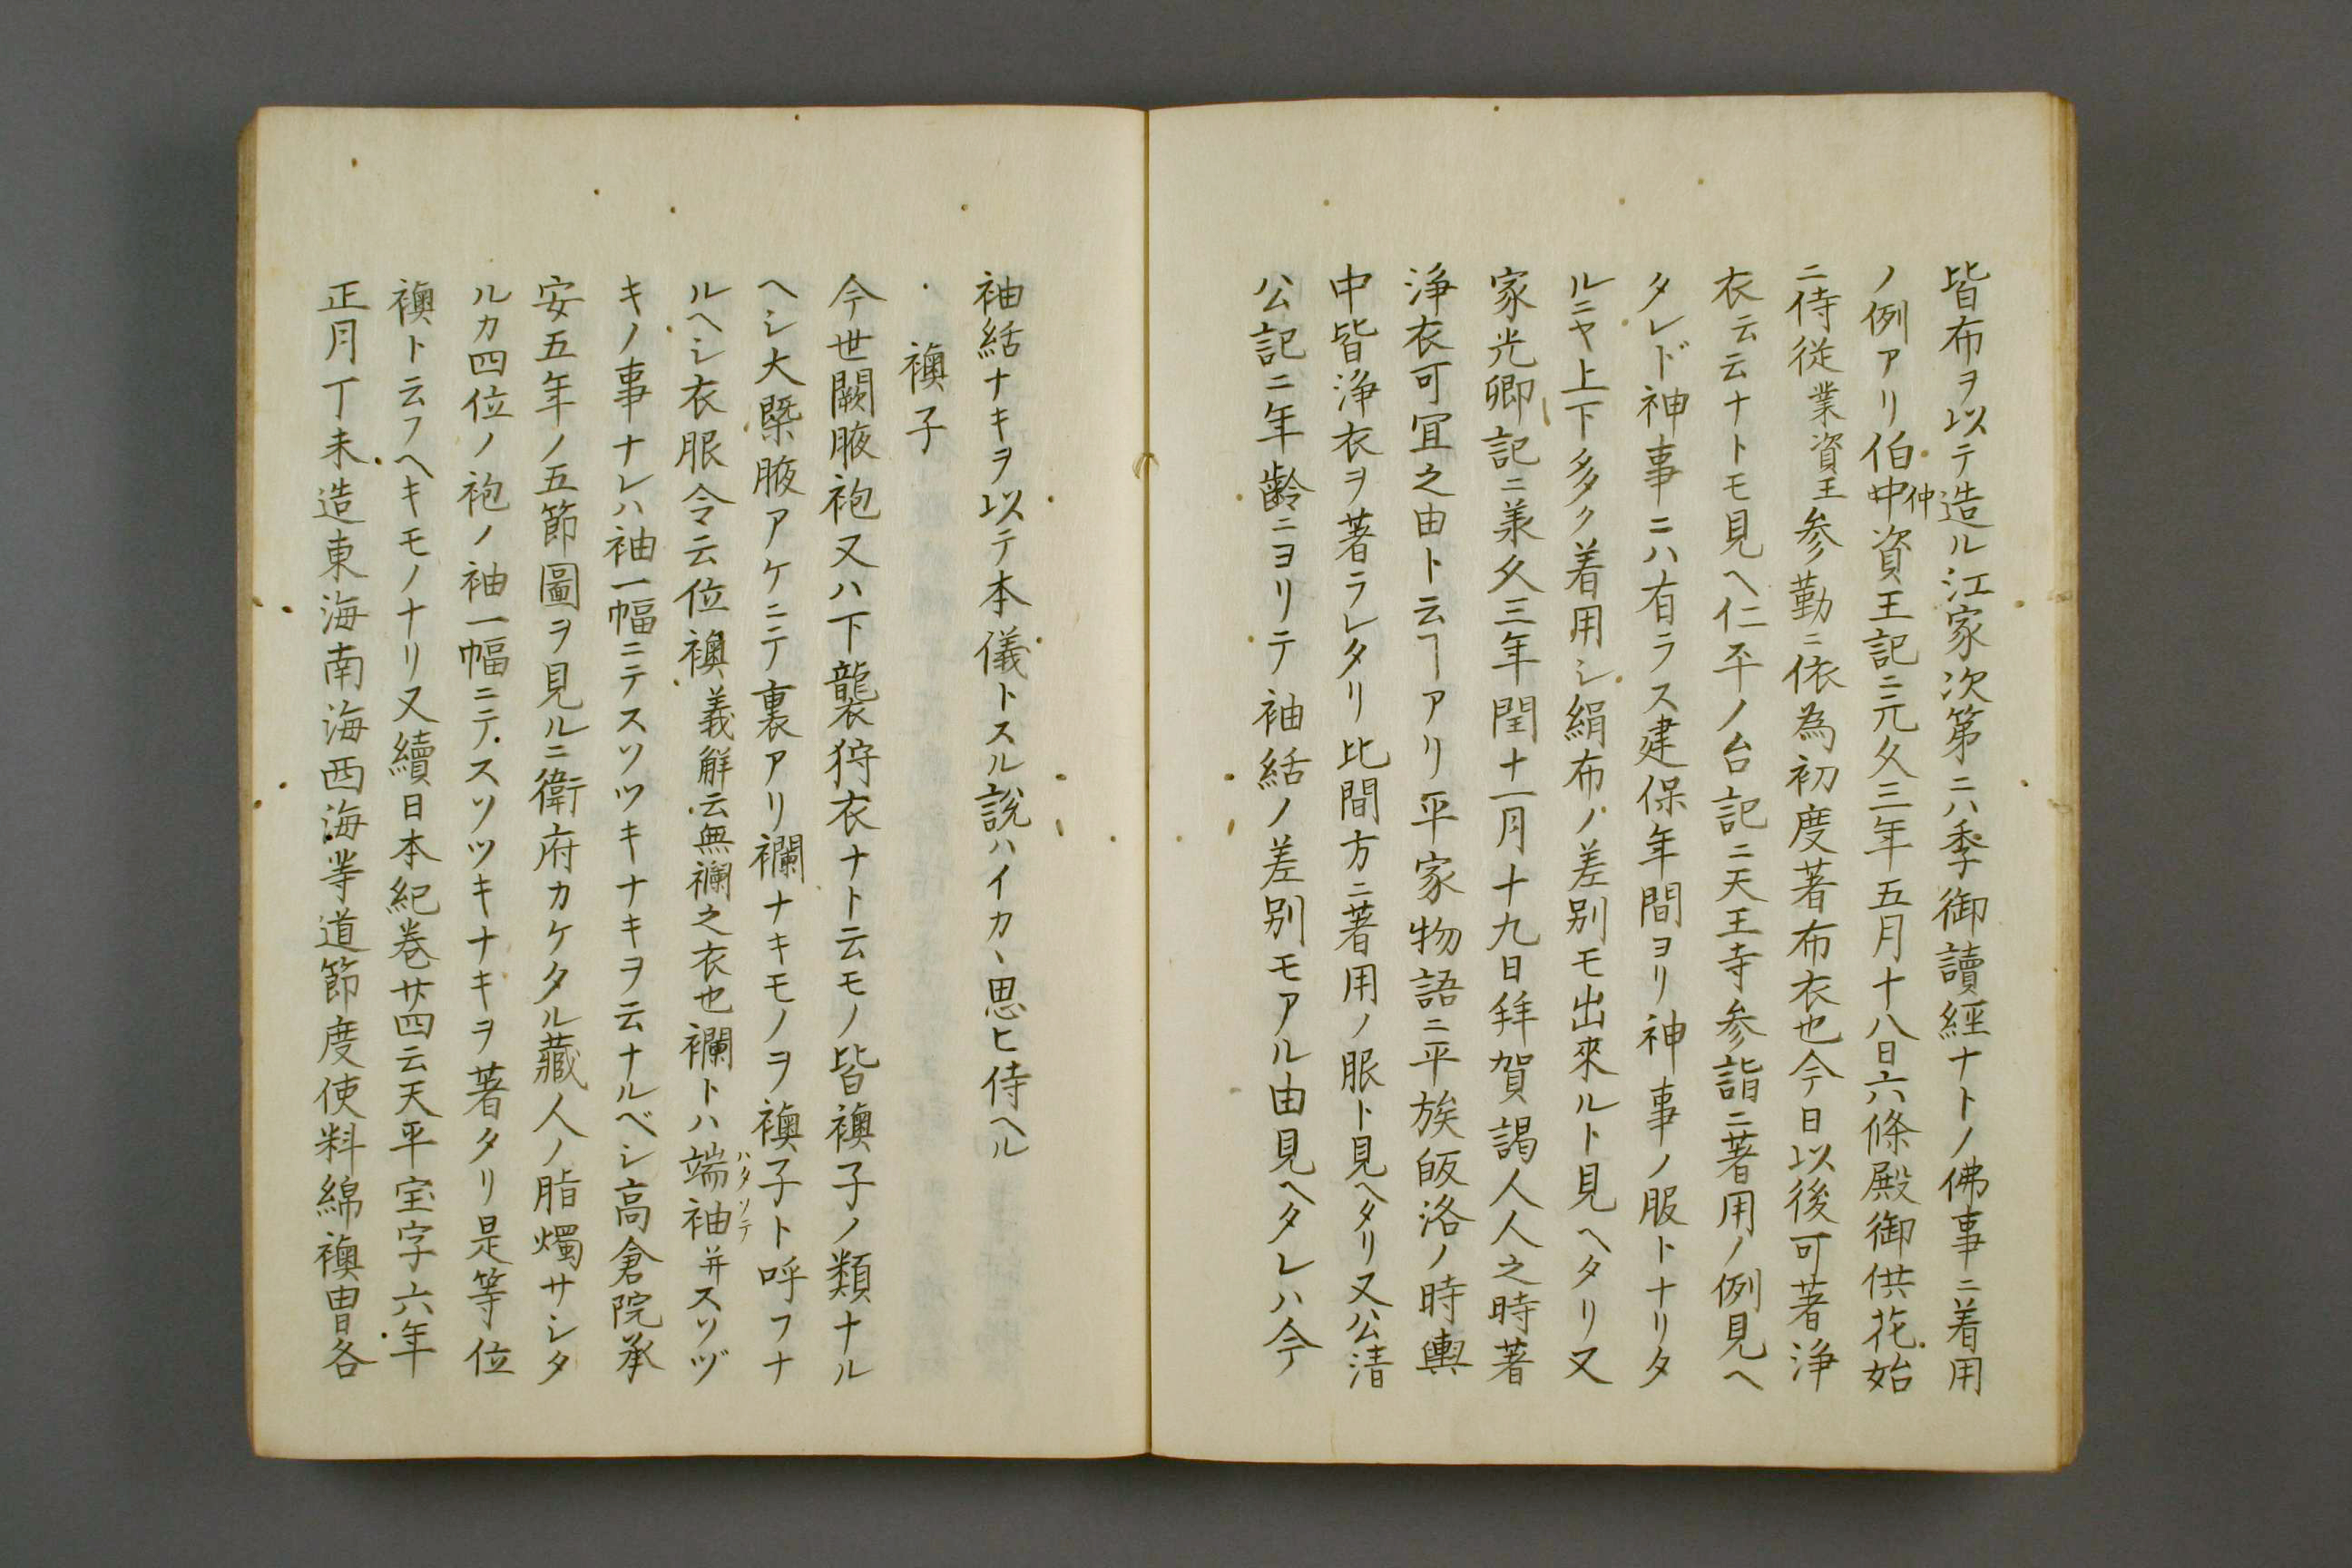 皆布ヲ以テ造ル江家次第ニハ季御讀經ナトノ佛事ニ着用
ノ例アリ伯中仲資王記ニ元久三年五月十八日六條殿御供花始
ニ侍従業資王参勤ニ依為初度著布衣也今日以後可著浄
衣云云ナトモ見ヘ仁平ノ台記ニ天王寺参詣ニ著用ノ例見ヘ
タレド神事ニハ有ラス建保年間ヨリ神事ノ服トナリタ
ルニヤ上下多ク着用シ絹布ノ差別モ出來ルト見ヘタリ又
家光卿記ニ羕久三年閏十一月十九日拜賀謁人人之時著
浄衣可宜之由ト云ヿアリ平家物語ニ平族皈洛ノ時輿
中皆浄衣ヲ著ラレタリ比間方ニ著用ノ服ト見ヘタリ又公清
公記ニ年齢ニヨリテ袖結ノ差別モアル由見ヘタレハ今
袖結ナキヲ以テ本儀トスル説ハイカヽ思ヒ侍ヘル
襖子
今世闕腋袍又ハ下襲狩衣ナト云モノ皆襖子ノ類ナル
ヘシ大槩腋アケニテ裏アリ襴ナキモノヲ襖子ト呼フナ
ルヘシ衣服令云位襖義解云無襴之衣也襴トハ端袖ハタソテ并スソヅ
キノ事ナレハ袖一幅ニテスソツキナキヲ云ナルベシ高倉院承
安五年ノ五節圖ヲ見ルニ衛府カケタル藏人ノ脂燭サシタ
ルカ四位ノ袍ノ袖一幅ニテスソツキナキヲ著タリ是等位
襖ト云フヘキモノナリ又續日本紀巻廿四云天平宝字六年
正月丁未造東海南海西海等道節度使料綿襖冑各